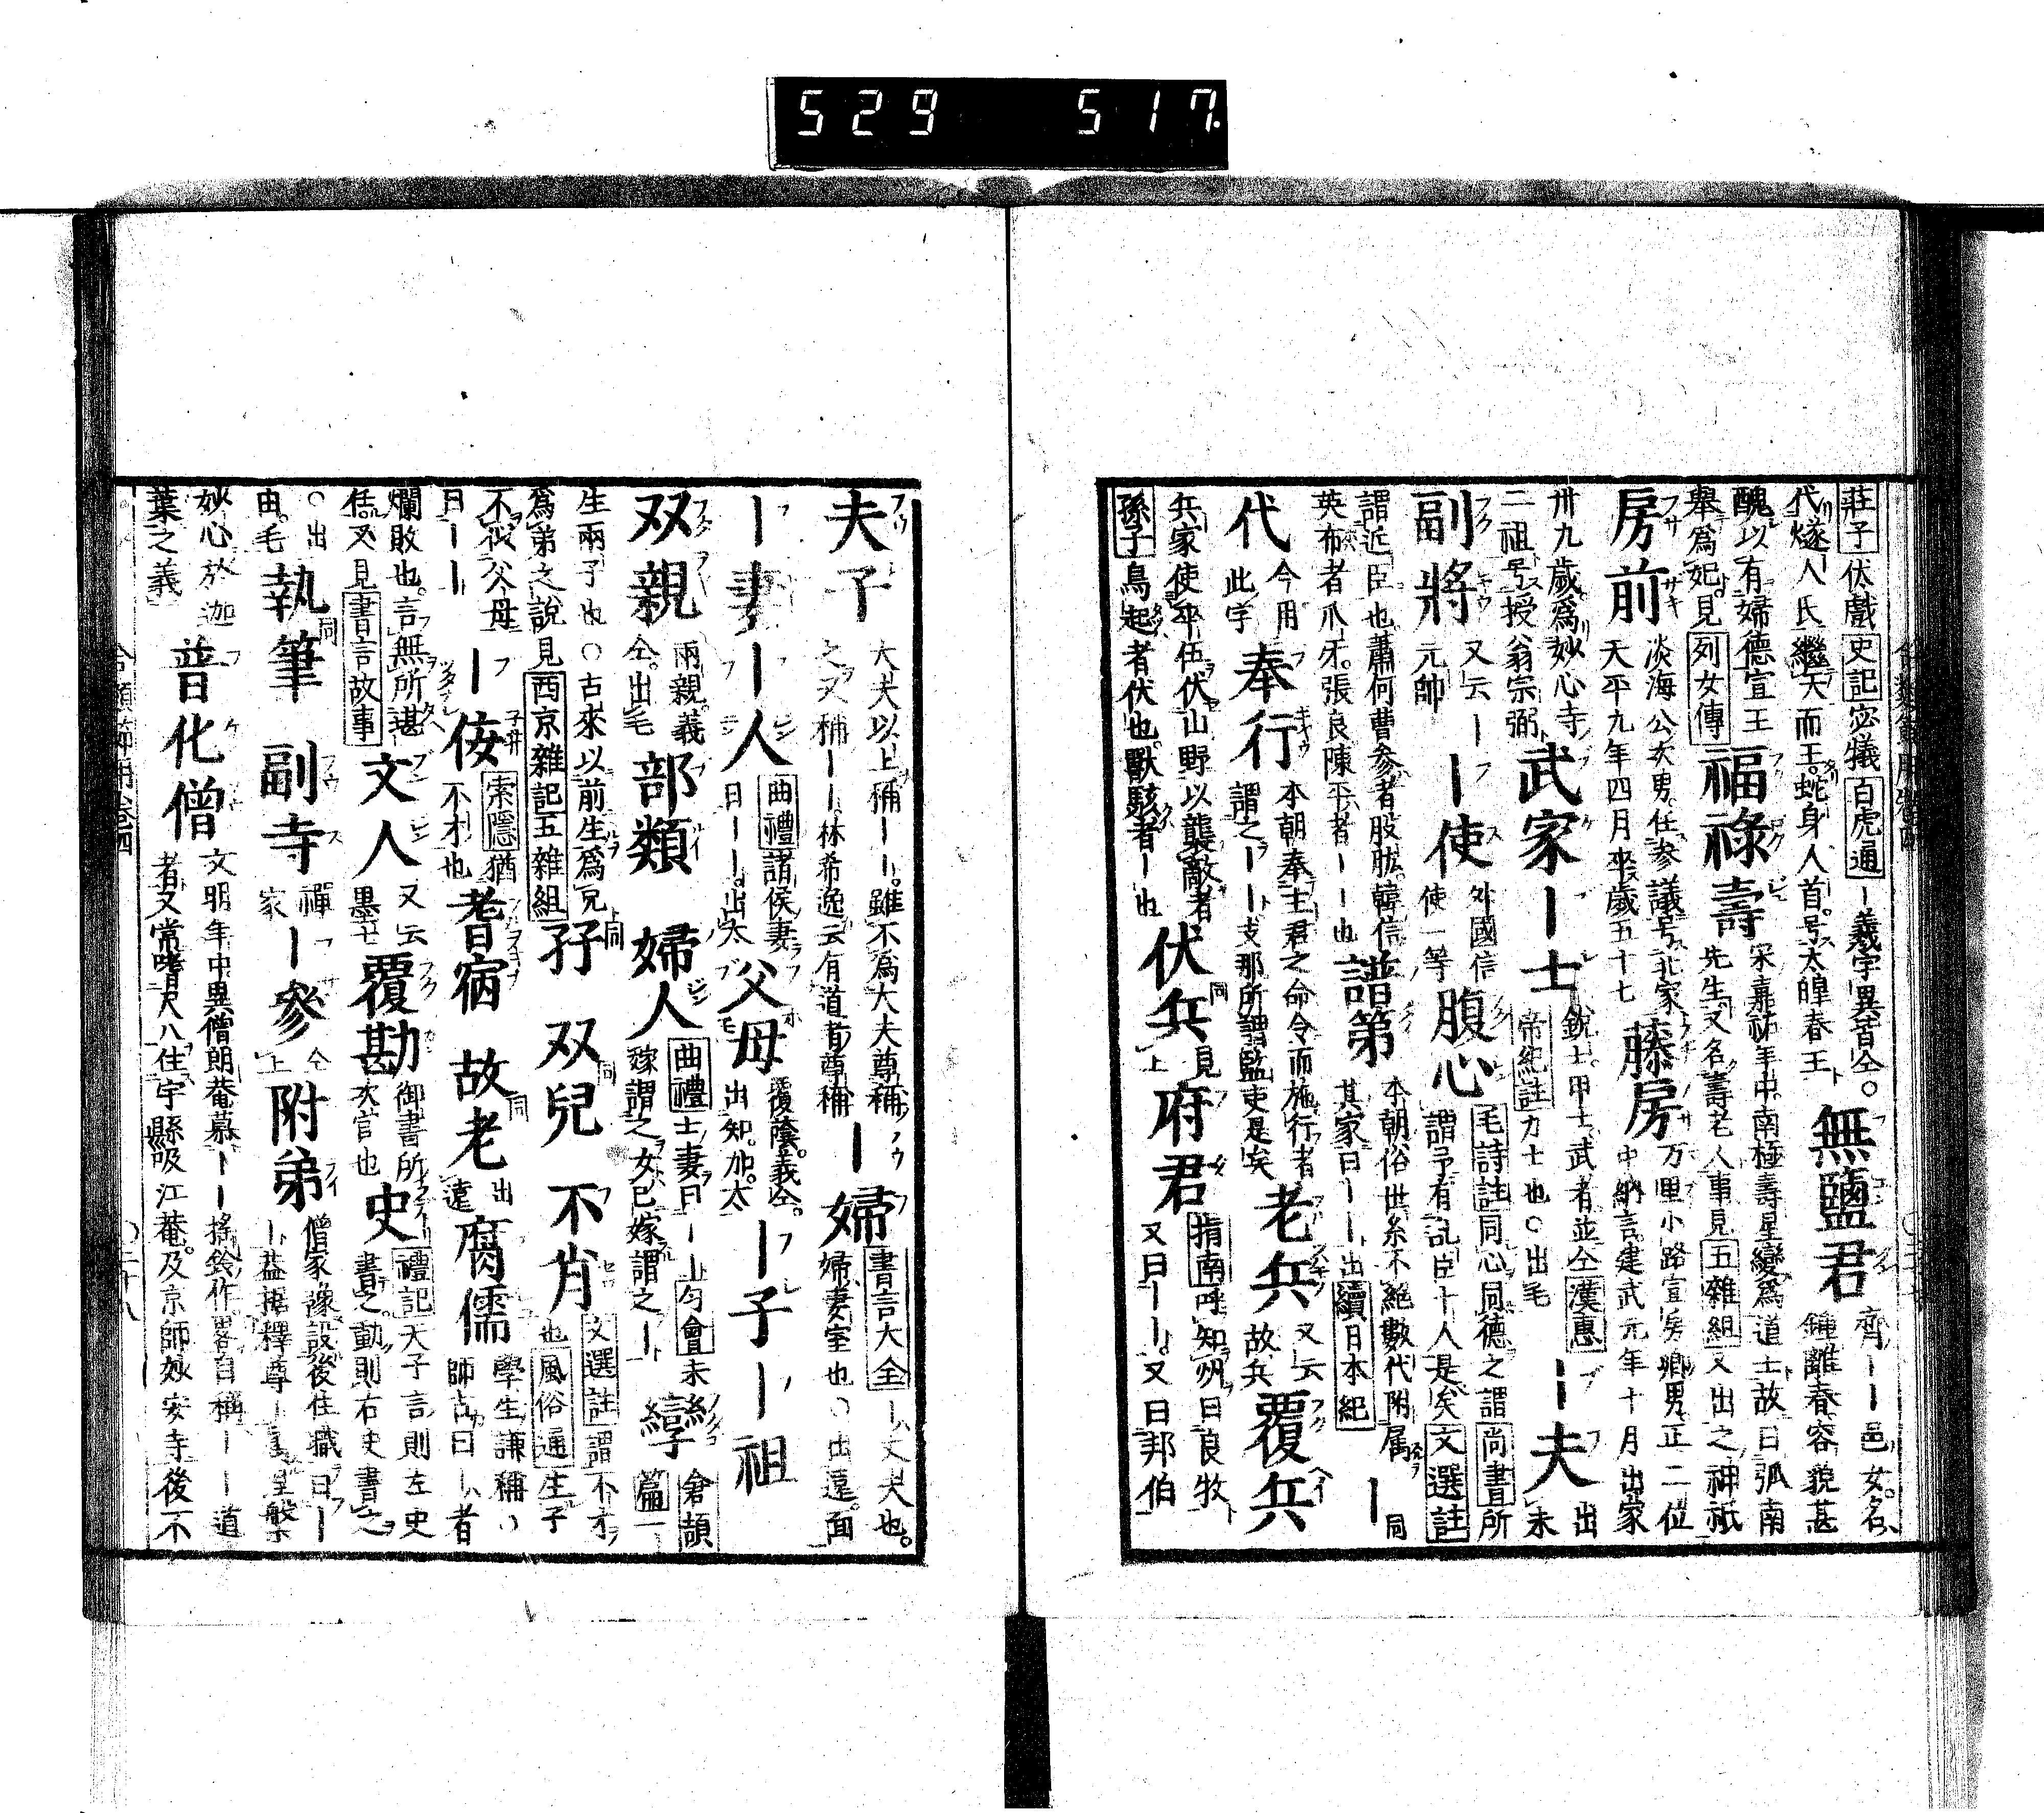 529 517.
莊子伏戲史記宓犧百虎通ー義字異旨仝○
代燧人氏繼天而王蛇身人首号太皥春王
無鹽君
齊ーー邑女名
鍾離春容貌甚
醜以有婦德宣王
舉爲妃見列女傳
福祿壽
宋嘉祐年中南極壽星變爲道士故曰弧南
先生又名壽老人事見五雜組又出之神祇
房前
淡海公次男任参議号北家
天平九年四月卒歲五十七
藤房
万里小路宣房卿男正二位
中納言建武元年十月出家
卅九歲爲妙心寺
二祖号授翁宗弼
武家
ー士
銳士甲士武者並仝漢惠
帝紀註力士也○出毛
ー夫
出
未
副將
又云ー
元帥
ー使
外國信
使一等
腹心
毛詩註同心同德之謂尚書所
謂予有乱臣十人是矣文選註
謂近臣也蕭何曹参者股肱韓信
英布者爪牙張良陳平者ーー也
譜第
本朝俗世系不絕數代附属
其家曰ーー出續日本紀
ー
同
代
今用
此字
奉行
本朝奉主君之命令而施行者
謂之ーー支那所謂監吏是矣
老兵
又云
故兵
覆兵
兵家使卒伍伏山野以襲敵者
孫子鳥起者伏也獸駭者ー也
伏兵
見
上
府君
指南呼知州曰良牧
又曰ーー又曰邦伯
夫子
大夫以上稱ーー雖不爲大夫尊稱
之又稱ーー林希逸云有道者尊稱
ー婦
書言大全ー丈夫也
婦妻室也○出遠面
ー妻
ー人
曲禮諸侯妻
曰ーー出太
父母
覆蔭義仝
出知加太
ー子
ー祖
双親
兩親義
仝出毛
部類
婦人
曲禮士妻曰ーー勻會未
嫁謂之女已嫁謂之ー
孿
倉頡
篇一
生兩子也○古來以前生爲兄
爲弟之說見西京雜記五雜組
孖
同
双兒
同
不肖
文選註謂不才
也風俗通生子
不似父母
曰ーー
ー侫
索隱猶
不才也
耆宿
故老
同
出
遠
腐儒
學生謙稱
師古曰ー者
爛敗也言無所堪
任又見書言故事
文人
又云
墨士
覆勘
御書所
次官也
史
禮記天子言則左史
書之動則右史書之
○出
由毛
執筆
同
副寺
禪
家
ー參
仝
上
附弟
僧家豫設後住職曰ー
ー益據釋尊
妙心於迦
葉之義
普化僧
文明年中異僧朗菴慕ーー搖鈴作畧自稱ーー道
者又常嗜尺八住宇縣吸江菴及京師妙安寺後不